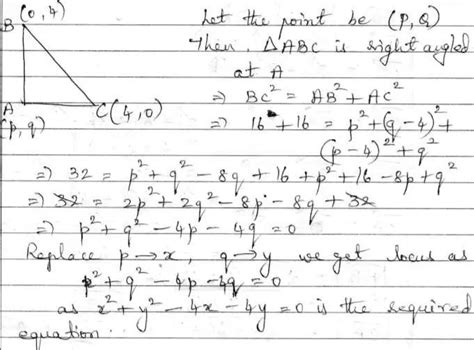 B (0, 4)
Let the point be (P, Q)
Then, △ABC is right angled
at A
⇒ BC² = AB² + AC²
A
C (4, 0)
(p, q)
⇒ 16 + 16 = p² + (q - 4)² +
(p - 4)² + q²
⇒ 32 = p² + q² - 8q + 16 + p² + 16 - 8p + q²
⇒ 32 = 2p² + 2q² - 8p - 8q + 32
⇒ p² + q² - 4p - 4q = 0
Replace p → x, q → y we get locus as
p² + q² - 4p - 4q = 0
as x² + y² - 4x - 4y = 0 is the required
equation.